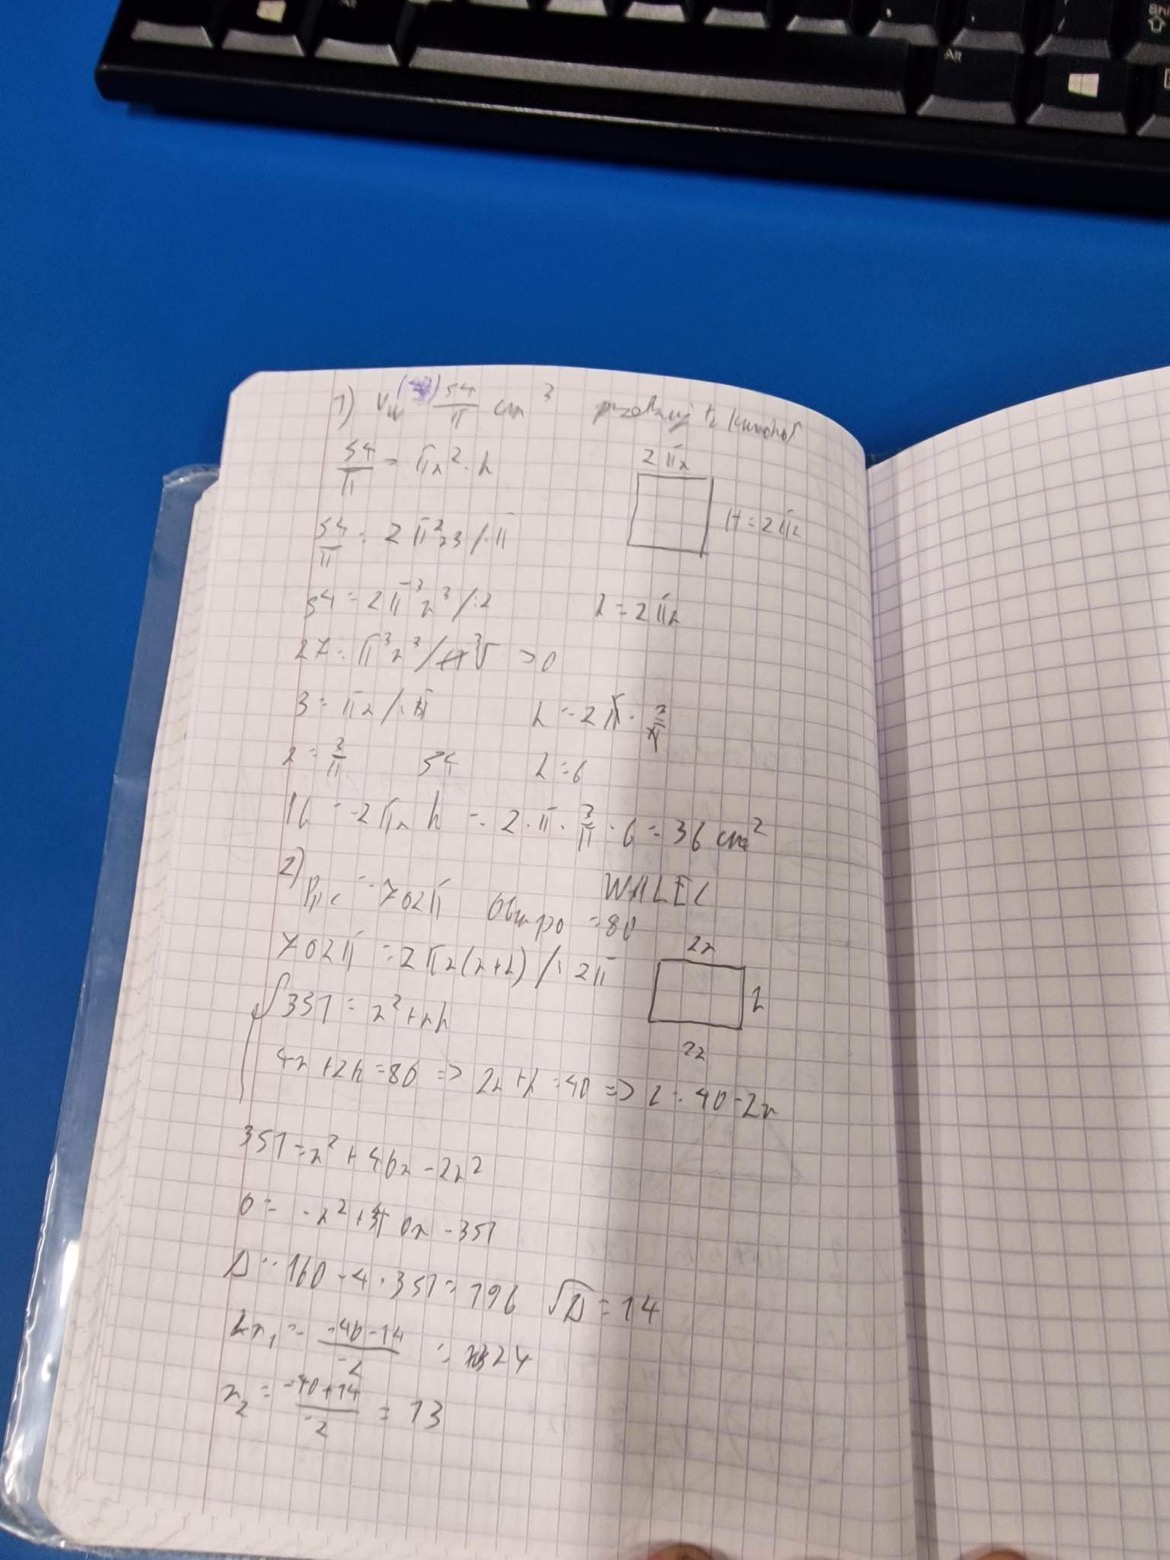 1) Vw 54/π cm³
54/π = πr²·h
2πr
H = 2πr
54/π = 2π²r³ /·π
54 = 2π³r³ /:2
h = 2πr
27 = π³r³ / ³√ >0
3 = πr /:π
h = 2π · 3/π
r = 3/π
54
h = 6
Pb = 2πr h = 2·π·3/π·6 = 36 cm²
2) Ppc = 702π
WALEC
Obw po = 80
702π = 2πr(r+h) /:2π
2r
h
2r
351 = r²+rh
4r+2h=80 => 2r+h=40 => h=40-2r
351=r²+40r-2r²
0 = -r²+40r-351
Δ = 160-4·351=196 √Δ=14
r₁ = -40-14/-2 = 24
r₂ = -40+14/-2 = 13